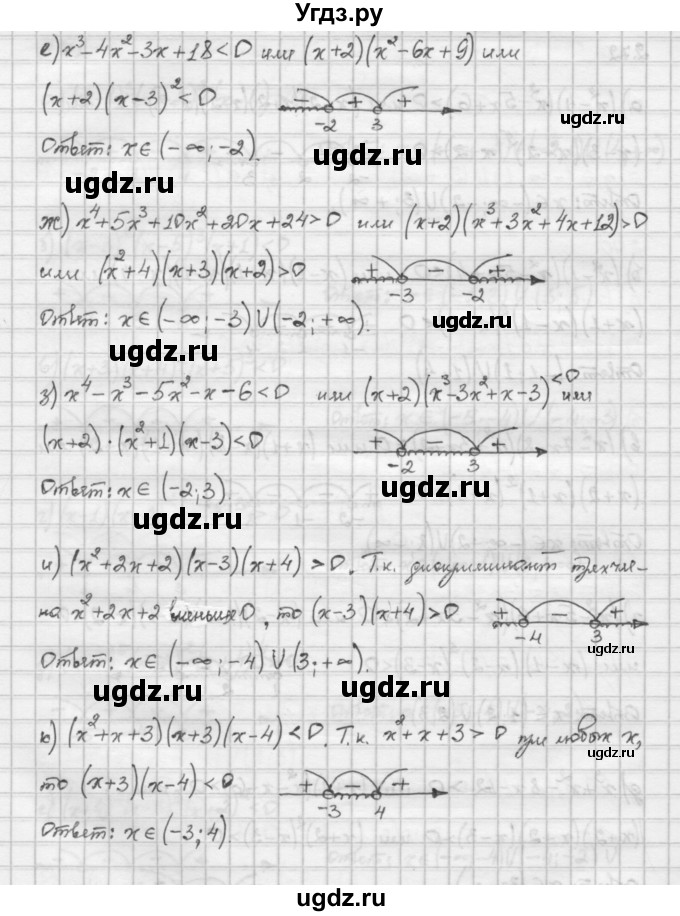 Угдз.ру
е) x³-4x²-3x+18<0 или (x+2)(x²-6x+9) или
(x+2)(x-3)²<0
- + +
-2 3
Ответ: x∈(-∞;-2).
ugdz.ru
ugdz.ru
ugdz.ru
ж) x⁴+5x³+10x²+20x+24>0 или (x+2)(x³+3x²+4x+12)>0
или (x²+4)(x+3)(x+2)>0
+ - +
-3 -2
Ответ: x∈(-∞;-3)∪(-2;+∞).
ugdz.ru
ugdz.ru
з) x⁴-x³-5x²-x-6<0 или (x+2)(x³-3x²+x-3)<0 или
(x+2)·(x²+1)(x-3)<0
+ - +
-2 3
Ответ: x∈(-2;3).
ugdz.ru
ugdz.ru
и) (x²+2x+2)(x-3)(x+4)>0. Т.к. дискриминант трехчле-
на x²+2x+2 меньше 0, то (x-3)(x+4)>0
+ - +
-4 3
ugdz.ru
Ответ: x∈(-∞;-4)∪(3;+∞).
ugdz.ru
ugdz.ru
к) (x²+x+3)(x+3)(x-4)<0. Т.к. x²+x+3>0 при любых x,
то (x+3)(x-4)<0
+ - +
-3 4
ugdz.ru
Ответ: x∈(-3;4).
ugdz.ru
ugdz.ru
ugdz.ru